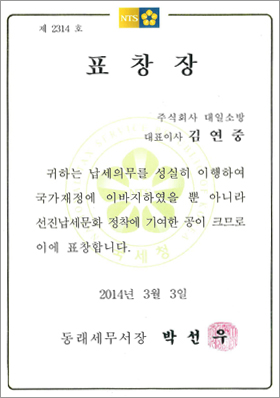 NTS
제 2314 호
표 창 장
주식회사 대일소방
대표이사 김 연 중
귀하는 납세의무를 성실히 이행하여
국가재정에 이바지하였을 뿐 아니라
선진납세문화 정착에 기여한 공이 크므로
이에 표창합니다.
2014년 3월 3일
동래세무서장 박 선 우